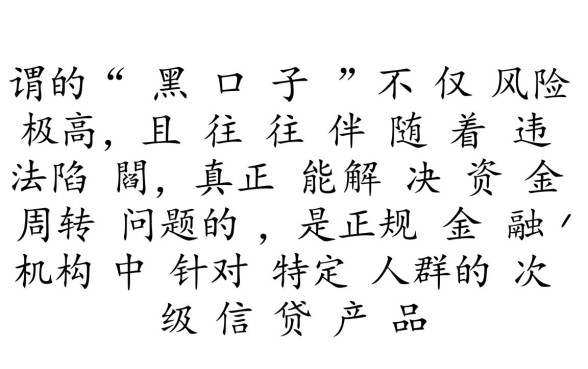 谓的“黑口子”不仅风险
极高，且往往伴随着违
法陷閰，真正能解决资金
周转问题的，是正规金融
机构中针对特定人群的次
级信贷产品